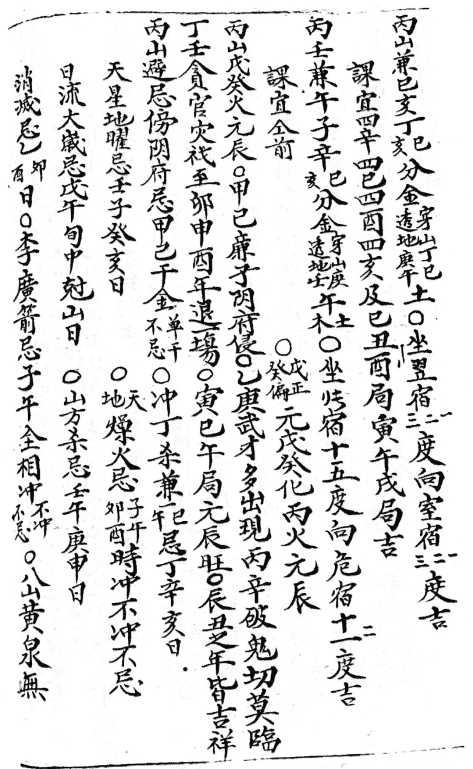 丙山兼巳亥丁巳丁亥分金穿山丁巳透地庚午土〇坐翌宿一二三度向室宿一二三度吉
課宜四辛四巳四酉四亥及巳丑酉局寅午戌局吉
丙壬兼午子辛巳辛亥分金穿山庚午土透地壬午木〇坐張宿十五度向危宿十一二度吉
課宜仝前 〇戊正癸偏元戊癸化丙火元辰
丙山戊癸火元辰〇甲己廉子陰府侵〇乙庚武才多出現丙辛破鬼切莫臨
丁壬貪官灾禍至卯申酉年退塲〇寅巳午局元辰旺〇辰丑之年皆吉祥
丙山避忌傍陰府忌甲己干全單干不忌〇冲丁杀兼巳午忌丁辛亥日
天星地曜忌壬子癸亥日 〇天地燥火忌子午卯酉時冲不冲不忌
日流大嵗忌戊午旬中尅山日 〇山方杀忌壬午庚申日
消滅忌乙卯酉日〇李廣箭忌子午全相冲不冲不忌〇八山黄泉無